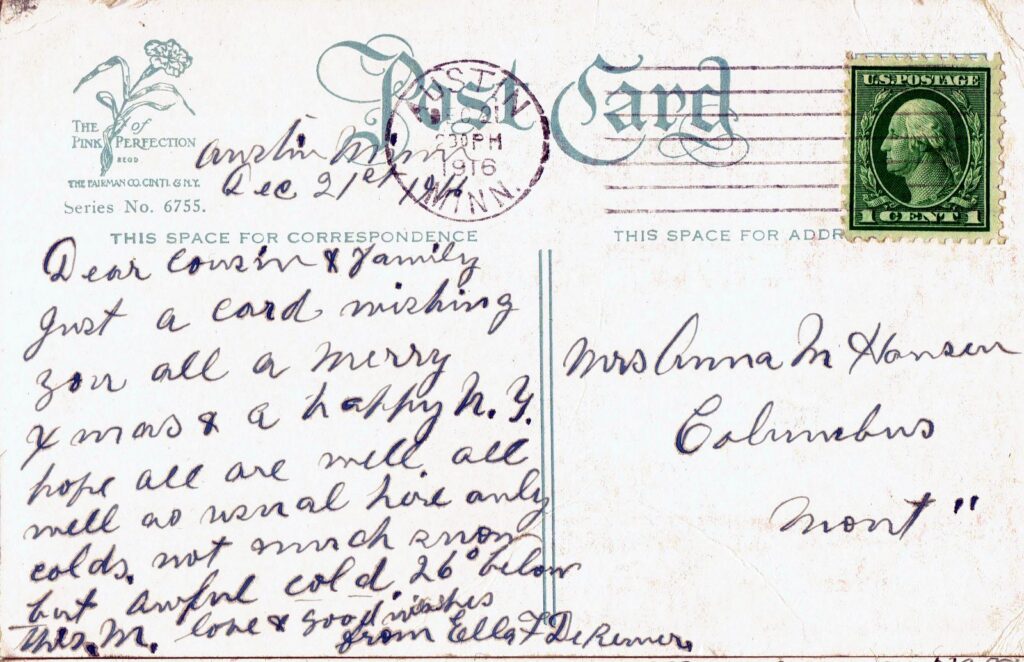 Post Card
THE of
PINK PERFECTION
REGD
THE FAIRMAN CO. CINTI. & N.Y.
Series No. 6755.
AUSTIN
DEC 21
230 PM
1916
MINN.
U.S. POSTAGE
1 CENT 1
Austin Minn
Dec 21st 1916
THIS SPACE FOR CORRESPONDENCE
THIS SPACE FOR ADDR
Dear Cousin & Family
Just a card wishing
you all a Merry
Xmas & a happy N.Y.
hope all are well. all
well as usual here only
colds. not much snow
but awful cold. 26° below
this. M. love & good wishes
from Ella F DeRemer.
Mrs Anna M Hansen
Columbus
Mont "